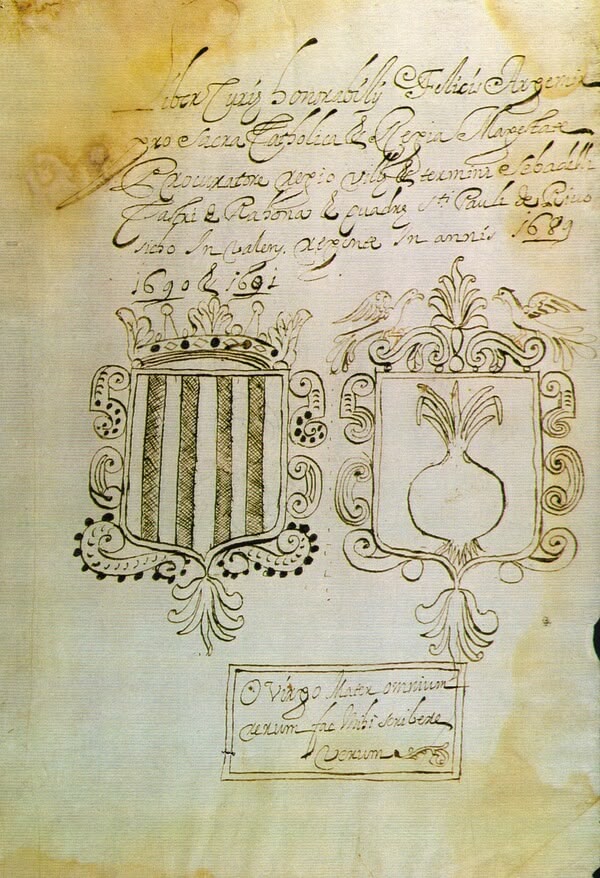 Liber Curiæ honorabilis Felicis Argemir
pro Sacra Catholica & Regia Magestate
Procuratore regio villæ & termini Sabadelli
Castri de Rahona & quadræ Sti Pauli de Rivo
sicho In Valens. regente In annis 1689
1690 & 1691
O Virgo Mater omnium
rerum fac Mihi scribere
Verum